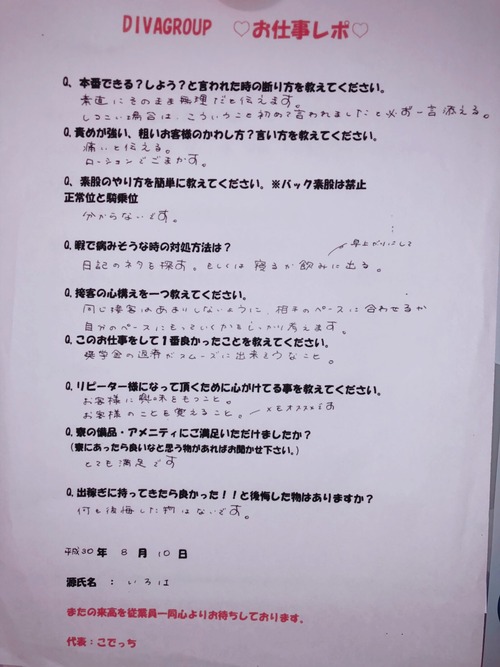 DIVAGROUP ♡お仕事レポ♡
Q、本番できる？しよう？と言われた時の断り方を教えてください。
素直にそのまま無理だと伝えます。
しつこい場合は、こういうこと初めて言われましたと必ず一言添える。
Q.責めが強い、粗いお客様のかわし方？言い方を教えてください。
痛いと伝える。
ローションでごまかす。
Q、素股のやり方を簡単に教えてください。※バック素股は禁止
正常位と騎乗位
分からないです。
Q.暇で病みそうな時の対処方法は？
早上がりにして
日記のネタを探す。もしくは寝るか飲みに出る。
Q.接客の心構えを一つ教えてください。
同じ接客はあまりしないように、相手のペースに合わせるか
自分のペースにもっていくかをしっかり考えます。
Q.このお仕事をして１番良かったことを教えてください。
奨学金の返済がスムーズに出来そうなこと。
Q.リピーター様になって頂くために心がけてる事を教えてください。
お客様に興味をもつこと。
お客様のことを覚えること。 メモオススメです
Q.寮の備品・アメニティにご満足いただけましたか？
（寮にあったら良いなと思う物があればお聞かせ下さい。）
とても満足です
Q.出稼ぎに持ってきたら良かった！！と後悔した物はありますか？
何も後悔した物はないです。
平成30年 8月 10日
源氏名 ： いろは
またの来高を従業員一同心よりお待ちしております。
代表：こでっち